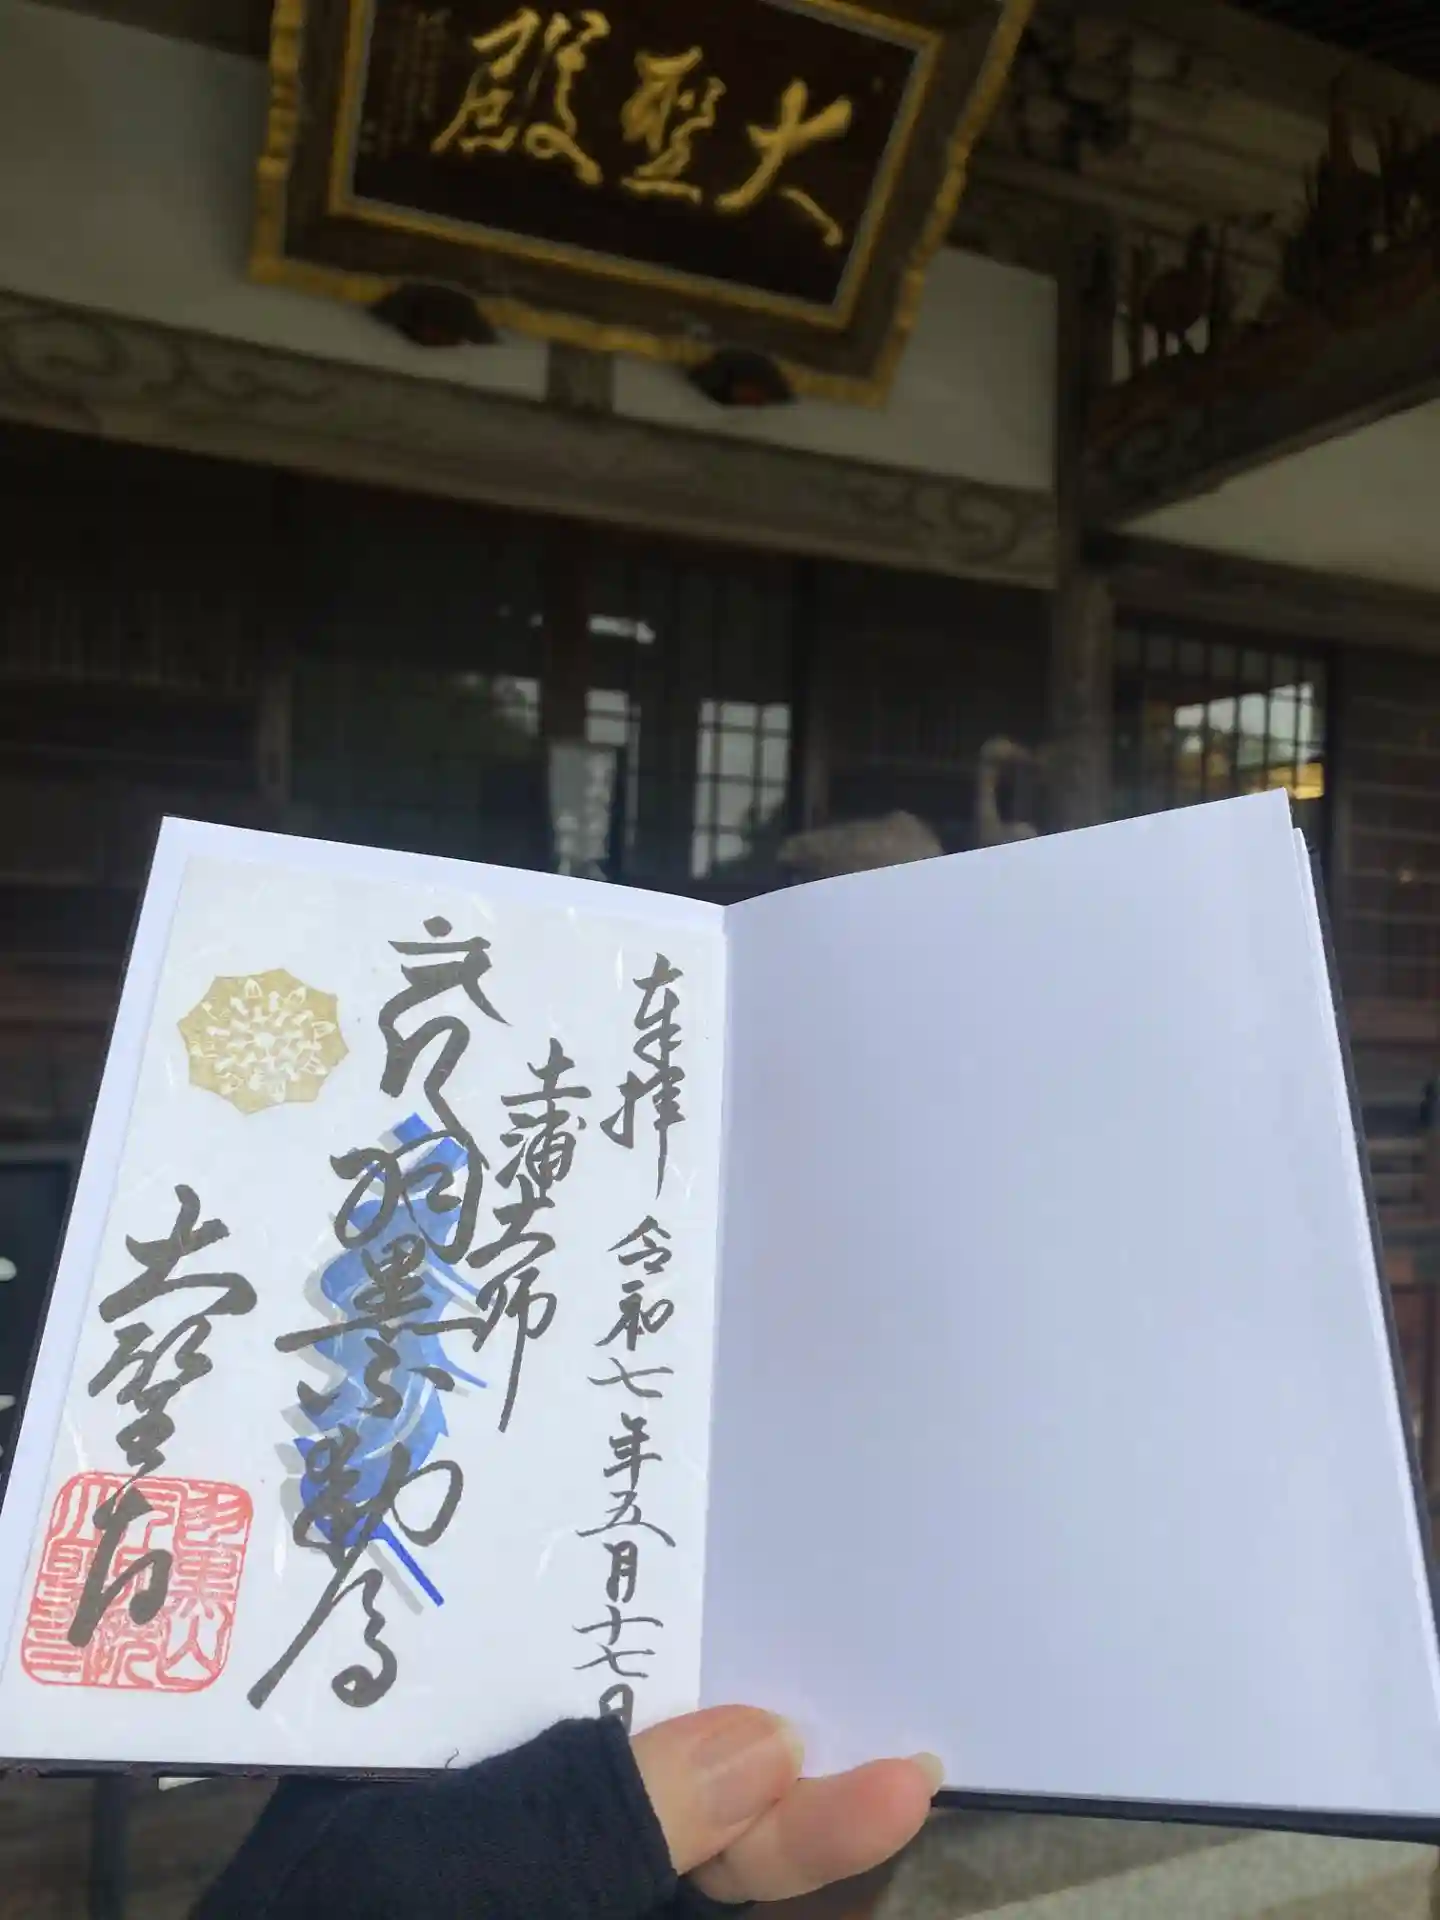 大聖殿
奉拝 令和七年五月十七日
土浦大師
羽黒不動尊
大聖寺